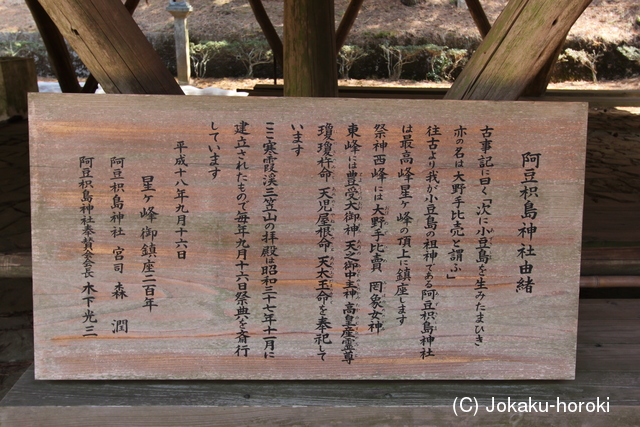 阿豆枳島神社由緒
古事記に曰く「次に小豆島を生みたまひき
亦の名は大野手比売と謂ふ」
往古より我が小豆島の祖神である阿豆枳島神社
は最高峰星ヶ峰の頂上に鎮座します
祭神西峰には大野手比賣 罔象女神
東峰には豊受大御神 天之御中主神 高皇産霊尊
瓊瓊杵命 天児屋根命 天太玉命を奉祀して
います
ここ寒霞渓三笠山の拝殿は昭和三十七年十一月に
建立されたもので毎年九月十六日祭典を斎行
しています
平成十八年九月十六日
星ヶ峰御鎮座二百年
阿豆枳島神社 宮司 森 潤
阿豆枳島神社奉賛会会長 木下光三
(C) Jokaku-horoki